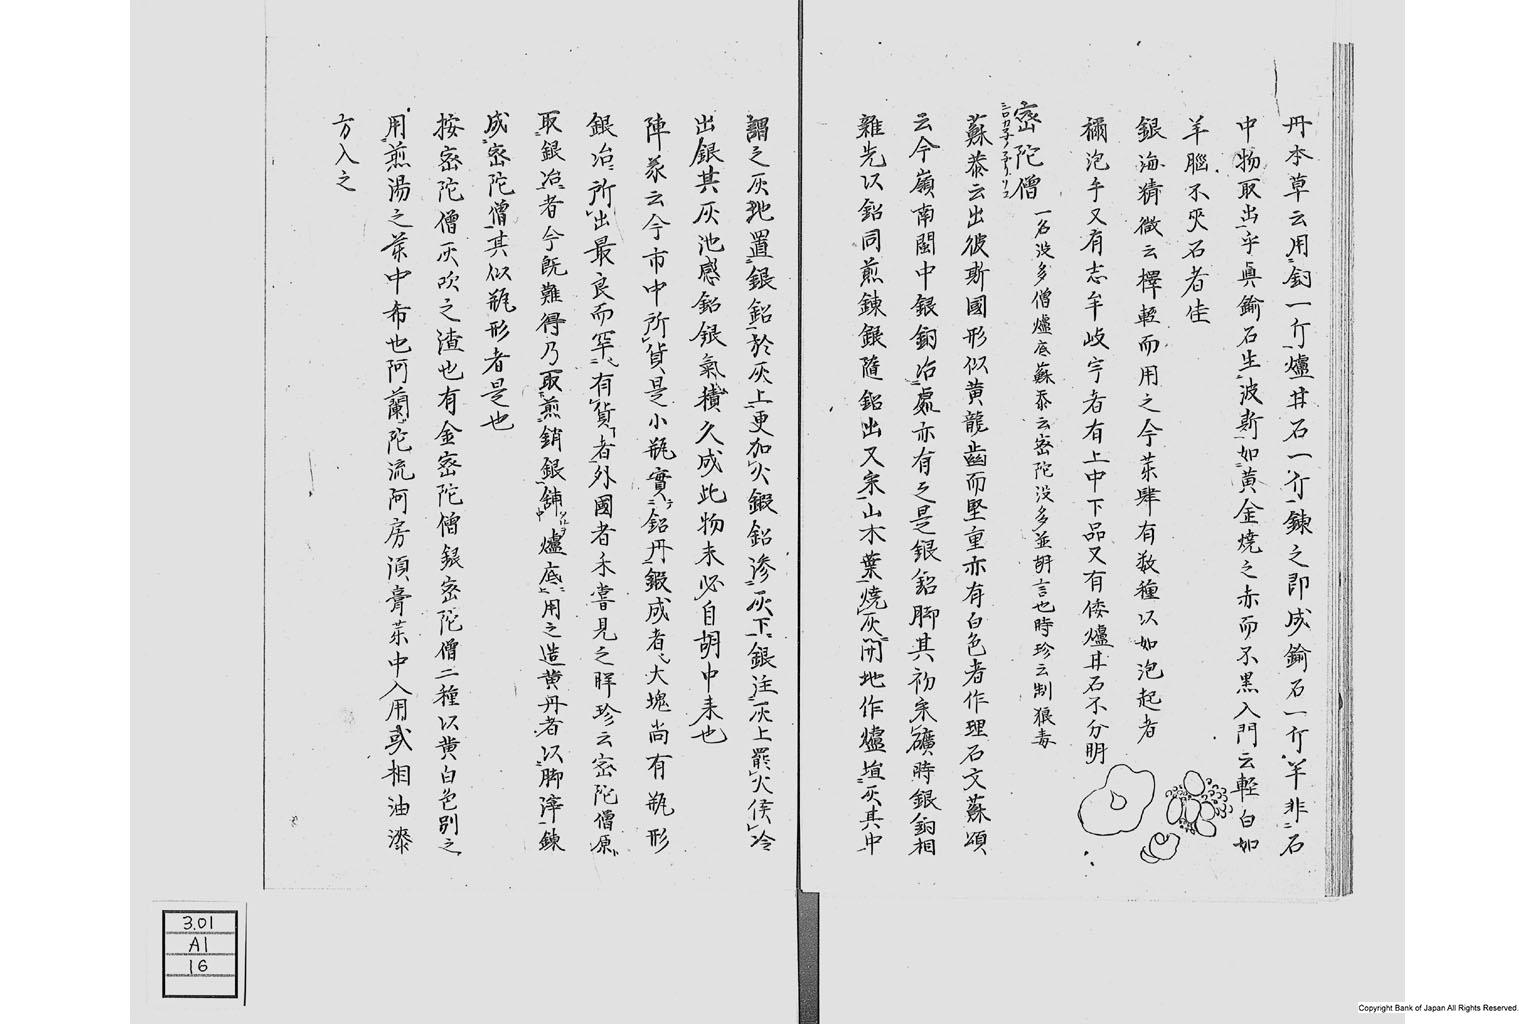 丹本草云用銅一斤爐甘石一斤錬之即成鍮石一斤半非石
中物取出乎眞鍮石生波斯如黄金燒之赤而不黒入門云輕白如
羊腦不夾石者佳
銀海精微云擇輕而用之今薬肆有数種以如泡起者
稱泡手又有志牟岐宇者有上中下品又有倭爐甘石不分明
密陀僧
一名没多僧爐底蘇恭云密陀没多並胡言也時珍云制狼毒
蘇恭云出彼斯國形似黄龍齒而堅重亦有白色者作理石文蘇頌
云今嶺南閩中銀銅冶處亦有之是銀鉛脚其初采礦時銀銅相
雜先以鉛同煎錬銀隨鉛出又采山木葉燒灰開地作爐塡灰其中
謂之灰池置銀鉛於灰上更加火鍜鉛滲灰下銀注灰上罷火候冷
出銀其灰池感鉛銀氣積久成此物未必自胡中来也
陣承云今市中所貨是小瓶實鉛丹鍜成者大塊尚有瓶形
銀冶所出最良而罕有貨者外國者未甞見之時珍云密陀僧原
取銀冶者今既難得乃取煎銷銀鋪爐底用之造黄丹者以脚滓錬
成密陀僧其似瓶形者是也
按密陀僧灰吹之渣也有金密陀僧銀密陀僧二種以黄白色別之
用煎湯之薬中希也阿蘭陀流阿房湏膏薬中入用或相油漆
方入之
3.01
A1
16
Copyright Bank of Japan All Rights Reserved.